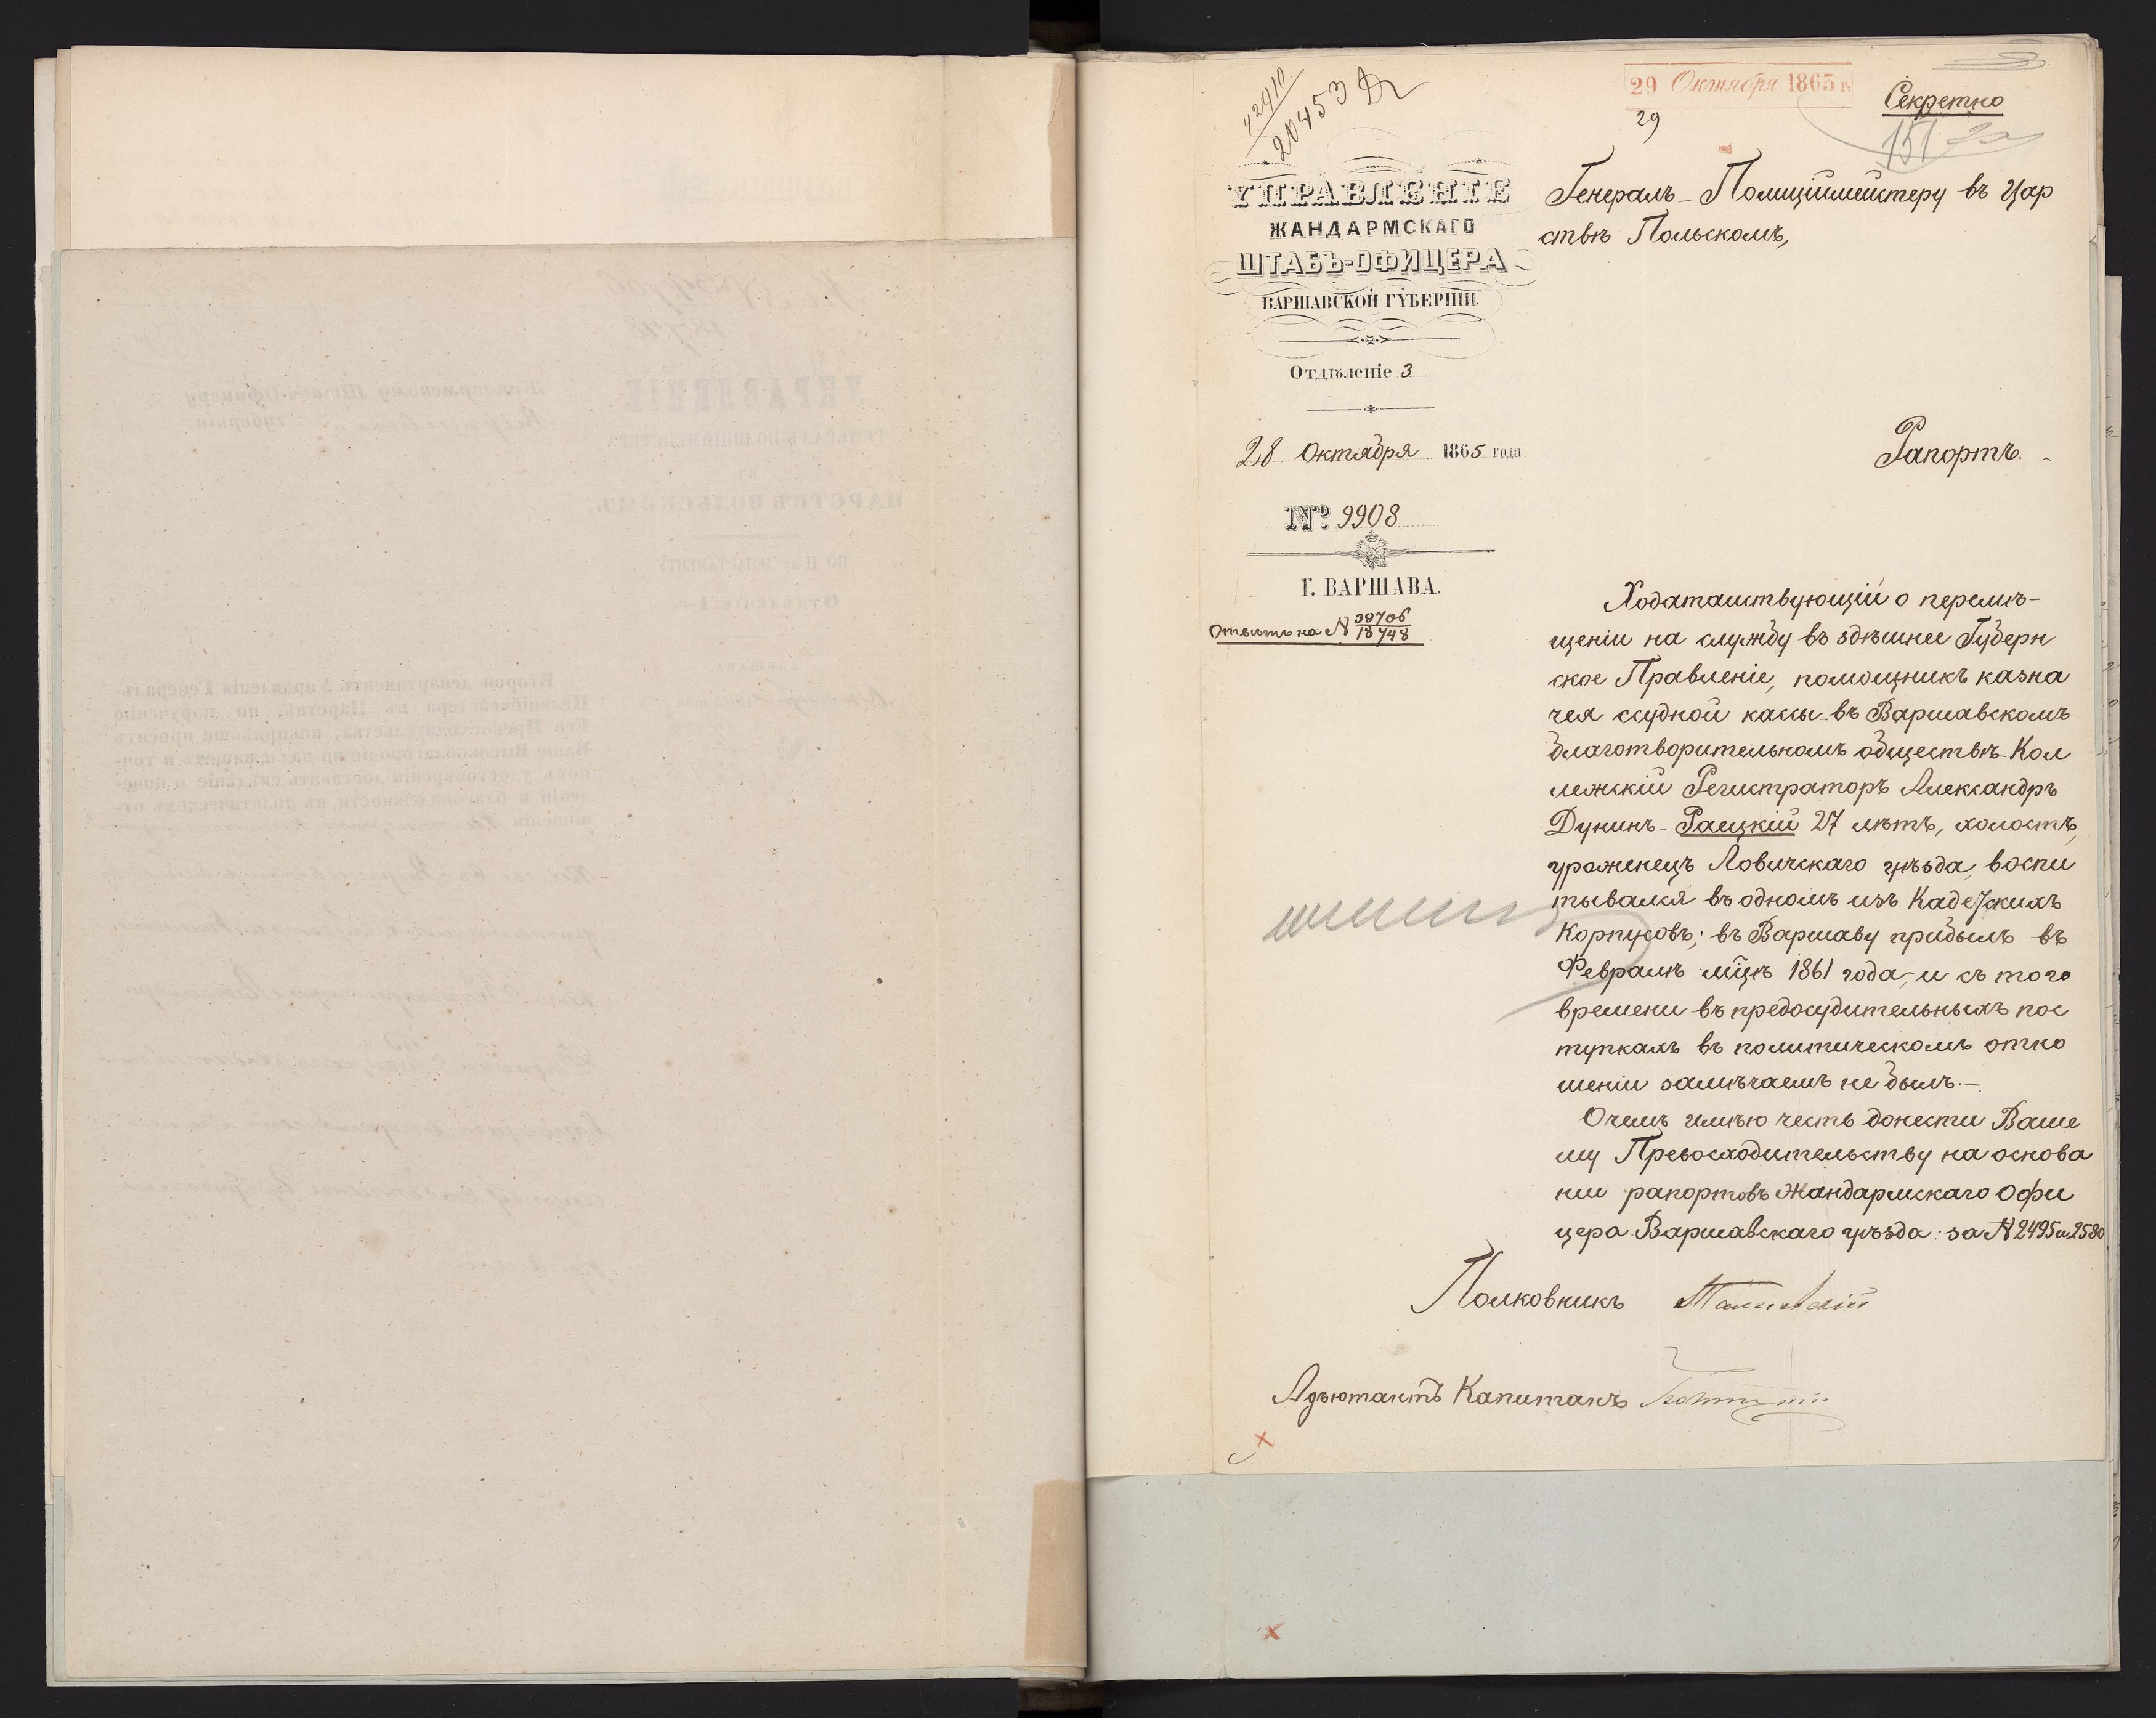 42910
20453
29 Октября 1865 г.
29
Секретно
151
УПРАВЛЕНІЕ
ЖАНДАРМСКАГО
ШТАБЪ-ОФИЦЕРА
ВАРШАВСКОЙ ГУБЕРНІИ.
Отдѣленіе 3
28 Октября 1865 года
№ 9908
Г. ВАРШАВА.
Отвѣтъ на № 39706
18748
Генералъ-Полиціймейстеру въ Цар
ствѣ Польскомъ,
Рапортъ.
Ходатайствующій о перемѣ-
щеніи на службу въ здѣшнее Губерн
ское Правленіе, помощникъ казна
чея ссудной кассы въ Варшавскомъ
благотворительномъ обществѣ Кол
лежскій Регистраторъ Александръ
Дунинъ-Раецкій 27 лѣтъ, холостъ,
уроженецъ Ловичскаго уѣзда, воспи
тывался въ одномъ изъ Кадетскихъ
Корпусовъ; въ Варшаву прибылъ въ
Февралѣ мцѣ 1861 года, и съ того
времени въ предосудительныхъ пос
тупкахъ въ политическомъ отно
шеніи замѣчаемъ не былъ.-
О чемъ имѣю честь донести Ваше
му Превосходительству на основа
ніи рапортовъ Жандармскаго Офи
цера Варшавскаго уѣзда: за № 2495 и 2580
Полковникъ
Адъютантъ Капитанъ